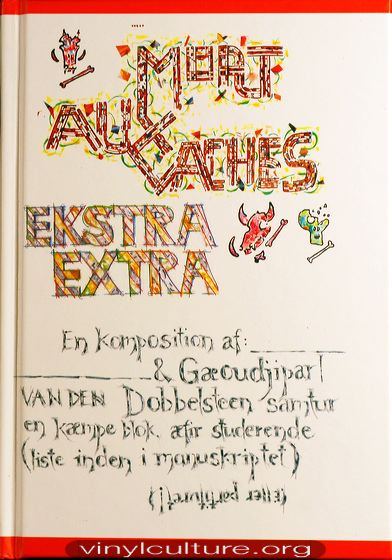 MORT
AUX
VACHES
EKSTRA
EXTRA
En komposition af: ________
________ & Gæoudjiparl
VAN DEN Dobbelsteen samtur
en kæmpe blok. æfir studerende
(liste inden i manuskriptet)
(eller partituret!)
vinylculture.org